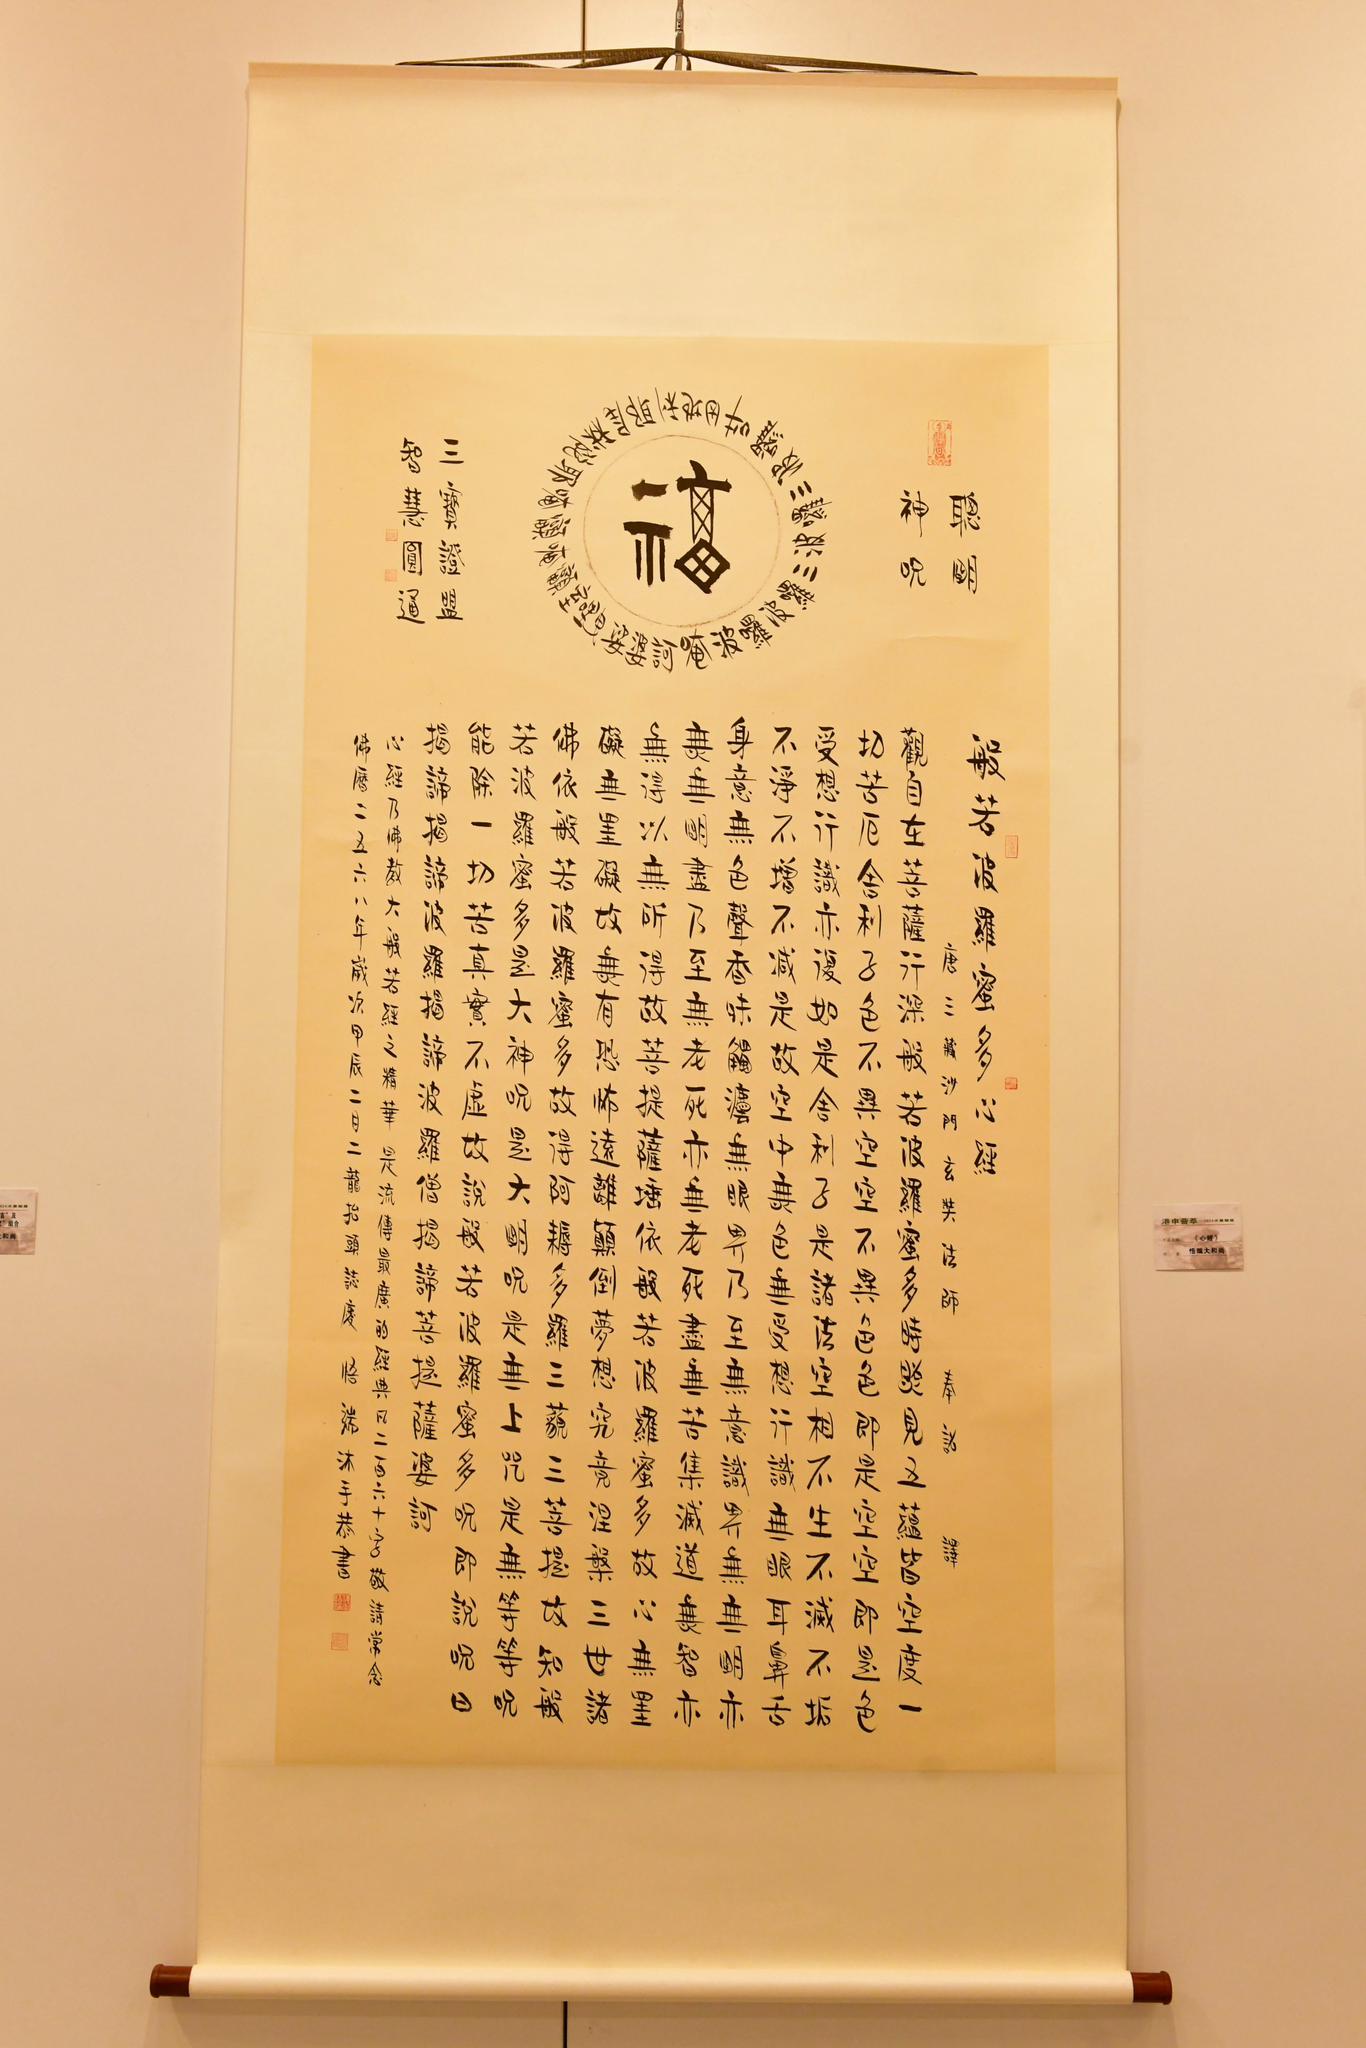 聰明
神呪
唵波囉波囉三波囉三波囉
福
三寶證盟
智慧圓通
般若波羅蜜多心經
唐三藏沙門玄奘法師 奉詔 譯
觀自在菩薩行深般若波羅蜜多時照見五蘊皆空度一
切苦厄舍利子色不異空空不異色色即是空空即是色
受想行識亦復如是舍利子是諸法空相不生不滅不垢
不淨不增不減是故空中無色無受想行識無眼耳鼻舌
身意無色聲香味觸灋無眼界乃至無意識界無無明亦
無無明盡乃至無老死亦無老死盡無苦集滅道無智亦
無得以無所得故菩提薩埵依般若波羅蜜多故心無罣
礙無罣礙故無有恐怖遠離顛倒夢想究竟涅槃三世諸
佛依般若波羅蜜多故得阿耨多羅三藐三菩提故知般
若波羅蜜多是大神呪是大明呪是無上咒是無等等呪
能除一切苦真實不虛故說般若波羅蜜多呪即說呪曰
揭諦揭諦波羅揭諦波羅僧揭諦菩提薩婆訶
心經乃佛教大般若經之精華 是流傳最廣的經典凡二百六十字敬請常念
佛曆二五六八年歲次甲辰二月二龍抬頭誌慶 悟端沐手恭書
《心經》
悟端大和尚